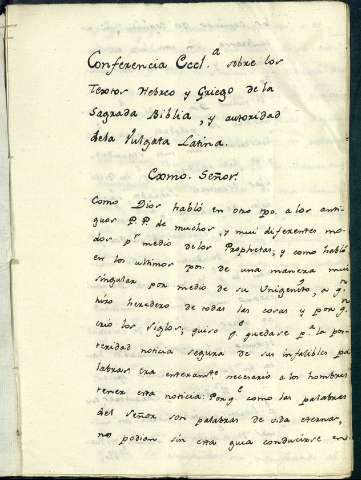 Conferencia Eccl.ª sobre los
Textos Hebreo y Griego de la
Sagrada Biblia, y autoridad
dela Vulgata Latina.
Exmo. Señor.
Como Dios habló en otro tpo. a los anti-
guos P.P. de muchos, y mui diferentes mo-
dos pr. medio delos Prophetas, y como habló
en los ultimos tpos. de una manera mui
singular por medio de su Unigenito, a qn.
hizo heredero de todas las cosas y por qn.
crió los siglos; quiso qe. quedase pa. la pos-
teridad noticia segura de sus infalibles pa-
labras. Era enteramte. necesario a los hombres
tener esta noticia. Porqe. como las palabras
del Señor son palabras de vida eterna,
no podian sin esta guia conducirse en